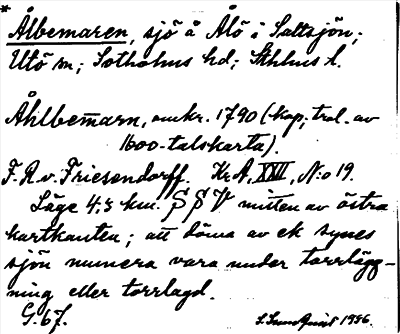 * Ålbemaren, sjö å Ålö i Saltsjön;
Utö sn; Sotholms hd; Sthlms l.
Åhlbemarn, omkr. 1790 (kop; trol. av
1600-talskarta).
F. R. v. Friesendorff. Kr A, XXII, N:o 19.
Läge 4,5 km. SSV mitten av östra
kartkanten; att döma av ek synes
sjön numera vara under torrlägg-
ning eller torrlagd.
G. 67.
1956.